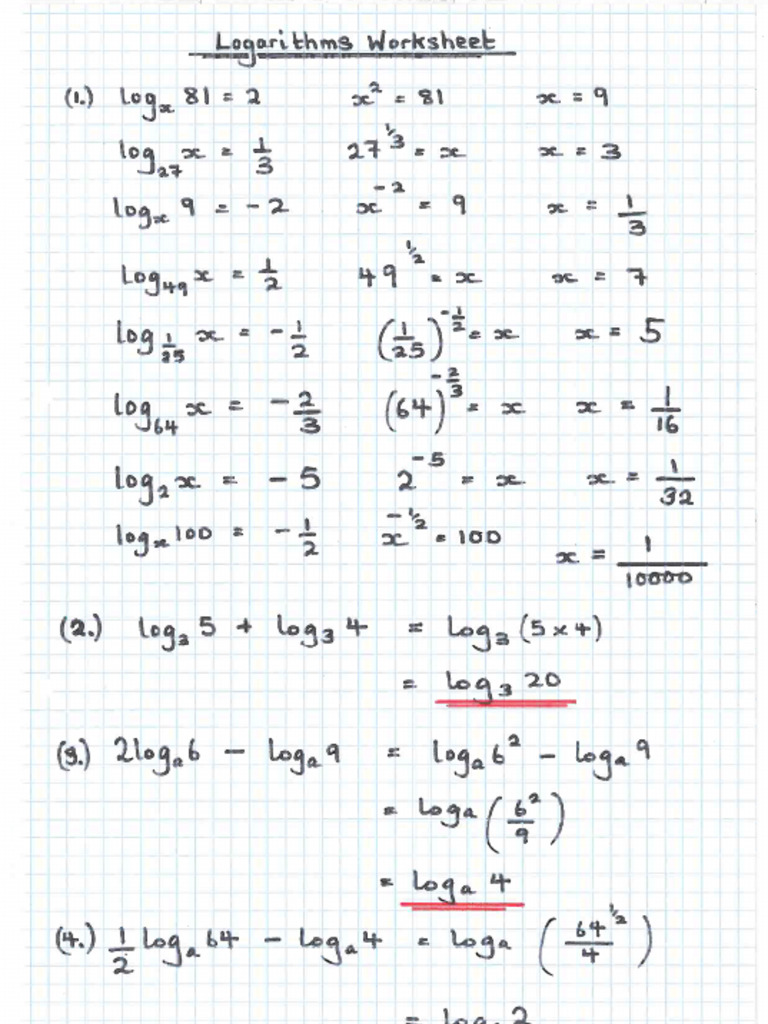 Logarithms Worksheet
(1.) logₓ 81 = 2 x² = 81 x = 9
log₂₇ x = 1/3 27^(1/3) = x x = 3
logₓ 9 = -2 x^(-2) = 9 x = 1/3
log₄₉ x = 1/2 49^(1/2) = x x = 7
log_(1/25) x = -1/2 (1/25)^(-1/2) = x x = 5
log₆₄ x = -2/3 (64)^(-2/3) = x x = 1/16
log₂ x = -5 2^(-5) = x x = 1/32
logₓ 100 = -1/2 x^(-1/2) = 100 x = 1/10000
(2.) log₃ 5 + log₃ 4 = log₃ (5 × 4)
= log₃ 20
(3.) 2logₐ 6 - logₐ 9 = logₐ 6² - logₐ 9
= logₐ (6²/9)
= logₐ 4
(4.) 1/2 logₐ 64 - logₐ 4 = logₐ (64^(1/2)/4)
= logₐ 2